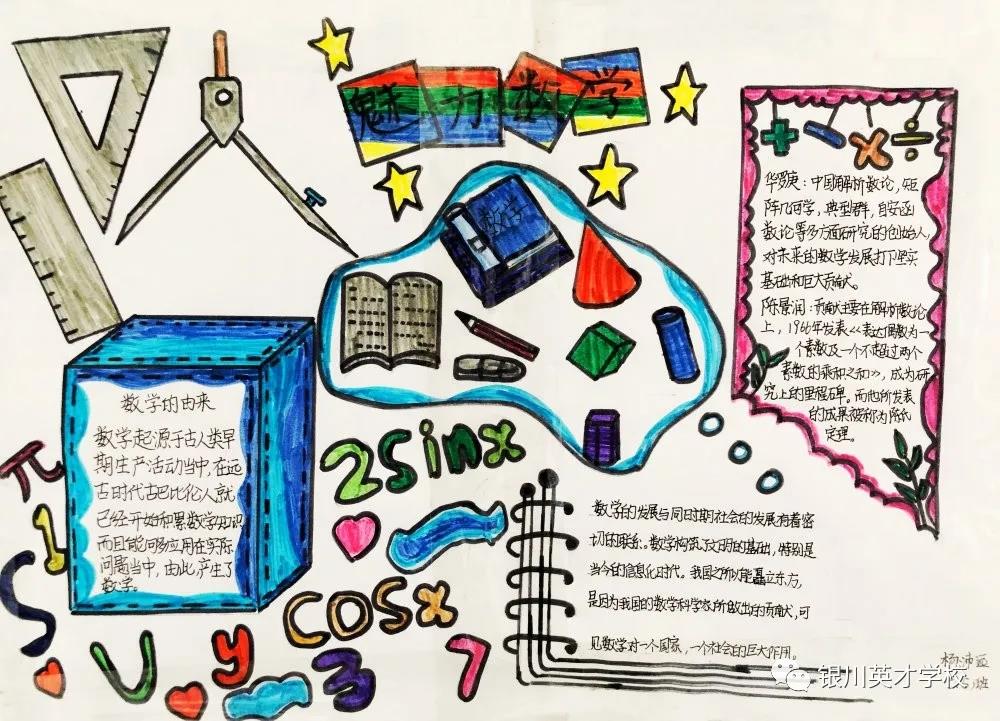 魅力数学
数学
华罗庚:中国解析数论,矩
阵几何学,典型群,自安函
数论等多方面研究的创始人,
对未来的数学发展打下坚实
基础和巨大贡献。
陈景润:贡献主要在解析数论
上,1966年发表《表达偶数为一
个素数及一个不超过两个
素数的乘积之和》,成为研
究上的里程碑。而他所发表
的成果被称为陈氏
定理。
数学的由来
数学起源于古人类早
期生产活动当中,在远
古时代古巴比伦人就
已经开始积累数学知识
而且能够应用在实际
问题当中,由此,产生了
数学。
π
2sinx
cosx
U
y
3
7
数学的发展与同时期社会的发展有着密
切的联系。数学构筑了文明的基础,特别是
当今的信息化时代。我国之所以能矗立东方,
是因为我国的数学科学家所做出的贡献,可
见数学对一个国家,一个社会的巨大作用。
银川英才学校